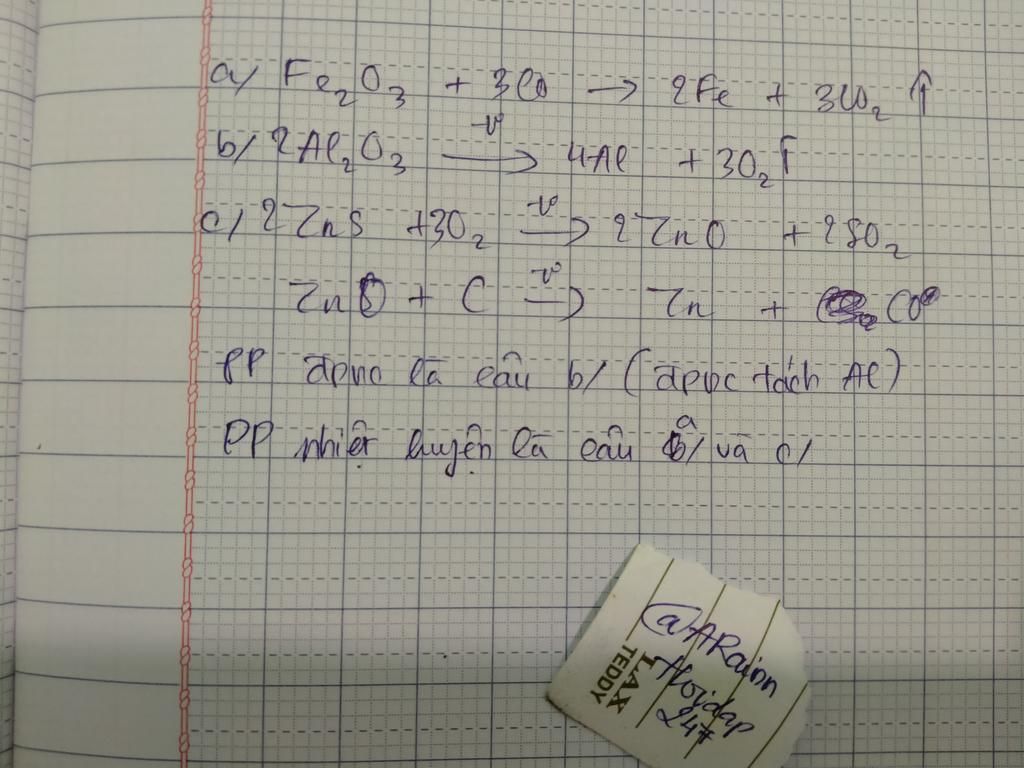 a/ Fe₂O₃ + 3CO → 2Fe + 3CO₂ ↑
b/ 2Al₂O₃ → 4Al + 3O₂ ↑
c/ 2ZnS + 3O₂ → 2ZnO + 2SO₂
ZnO + C → Zn + CO
PP đpnc là câu b/ (đpnc tách Al)
PP nhiệt luyện là câu a/ và c/
@ARaion
Hojdap
247
LAX
TEDDY